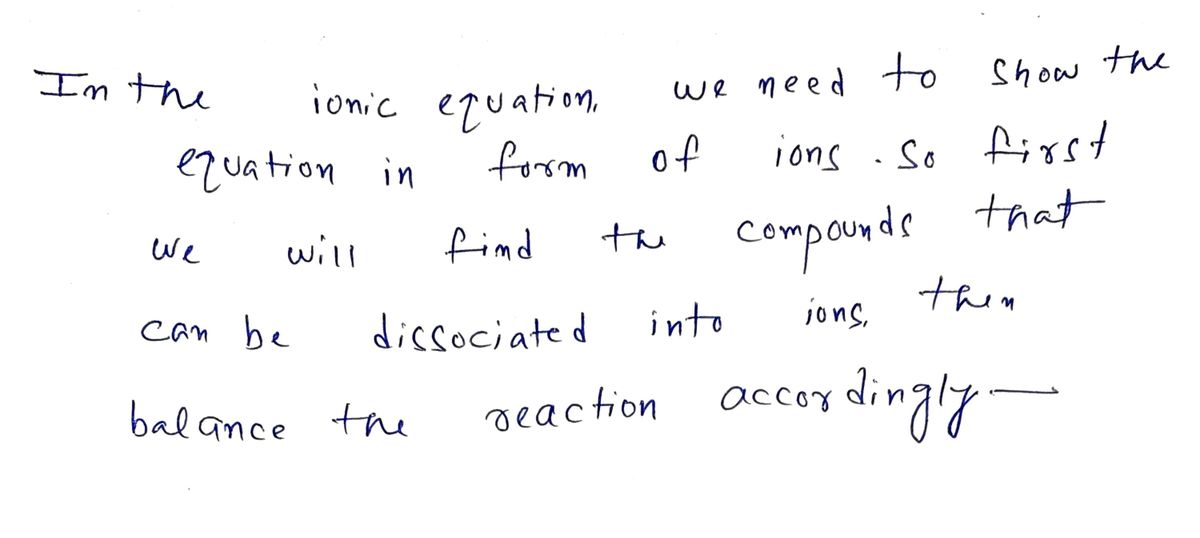 In the ionic equation, we need to show the
equation in form of ions. So first
we will find the compounds that
can be dissociated into ions, then
balance the reaction accordingly—